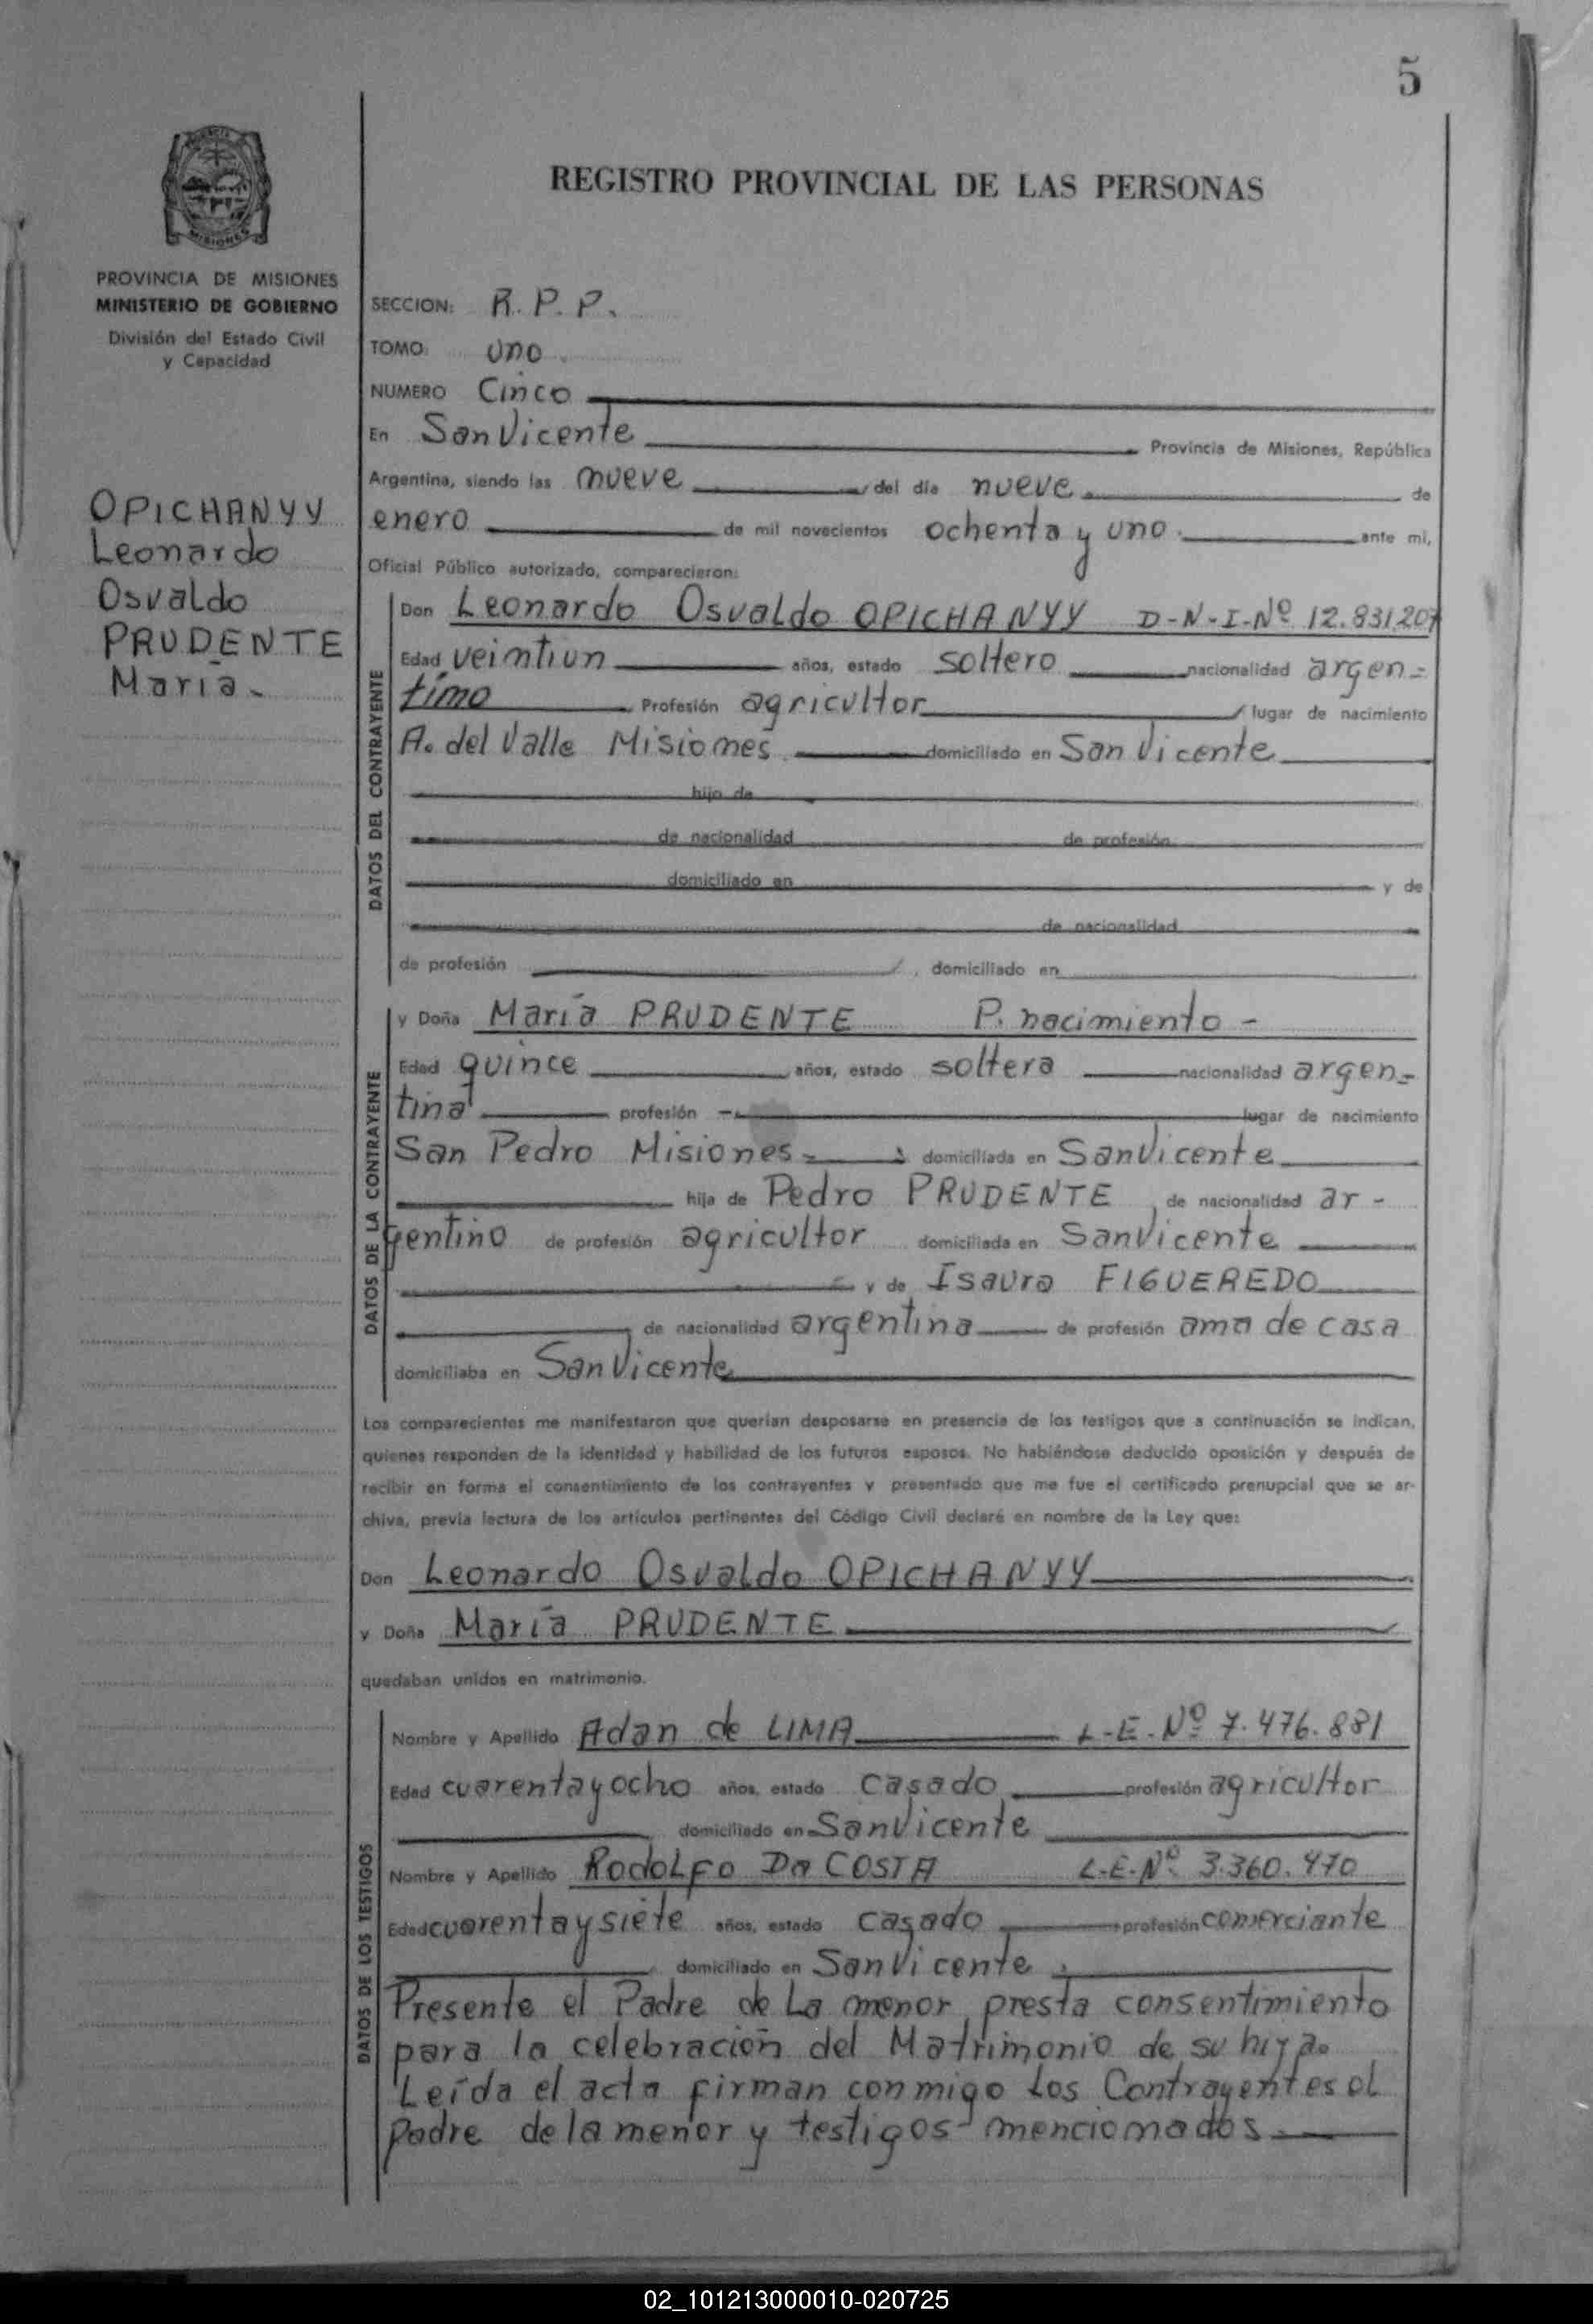 5
REGISTRO PROVINCIAL DE LAS PERSONAS
PROVINCIA DE MISIONES
MINISTERIO DE GOBIERNO
División del Estado Civil
y Capacidad
OPICHANYY
Leonardo
Osvaldo
PRUDENTE
María.
SECCION: R.P.P.
TOMO: uno.
NUMERO Cinco
En San Vicente Provincia de Misiones, República
Argentina, siendo las nueve del día nueve de
enero de mil novecientos ochenta y uno. ante mi,
Oficial Público autorizado, comparecieron:
DATOS DEL CONTRAYENTE
Don Leonardo Osvaldo OPICHANYY D-N-I-Nº 12.831.207
Edad veintiun años, estado soltero nacionalidad argen-
tino Profesión agricultor lugar de nacimiento
A. del Valle Misiones domiciliado en San Vicente
hijo de
de nacionalidad de profesión
domiciliado en y de
de nacionalidad
de profesión , domiciliado en
DATOS DE LA CONTRAYENTE
y Doña María PRUDENTE P. nacimiento -
Edad quince años, estado soltera nacionalidad argen-
tina profesión - lugar de nacimiento
San Pedro Misiones domiciliada en San Vicente
hija de Pedro PRUDENTE , de nacionalidad ar-
gentino de profesión agricultor domiciliada en San Vicente
y de Isaura FIGUEREDO
de nacionalidad argentina de profesión ama de casa
domiciliaba en San Vicente
Los comparecientes me manifestaron que querían desposarse en presencia de los testigos que a continuación se indican,
quienes responden de la identidad y habilidad de los futuros esposos. No habiéndose deducido oposición y después de
recibir en forma el consentimiento de los contrayentes y presentado que me fue el certificado prenupcial que se ar-
chiva, previa lectura de los artículos pertinentes del Código Civil declaré en nombre de la Ley que:
Don Leonardo Osvaldo OPICHANYY
y Doña María PRUDENTE
quedaban unidos en matrimonio.
DATOS DE LOS TESTIGOS
Nombre y Apellido Adan de LIMA L-E-Nº 7.476.881
Edad cuarenta y ocho años, estado casado profesión agricultor
domiciliado en San Vicente
Nombre y Apellido RodoLFo Da COSTA L-E-Nº 3.360.470
Edad cuarenta y siete años, estado casado profesión comerciante
domiciliado en San Vicente
Presente el Padre de La menor, presta consentimiento
para la celebración del Matrimonio de su hija.
Leída el acta firman conmigo Los Contrayentes el
Padre de la menor y testigos mencionados.
02_101213000010-020725